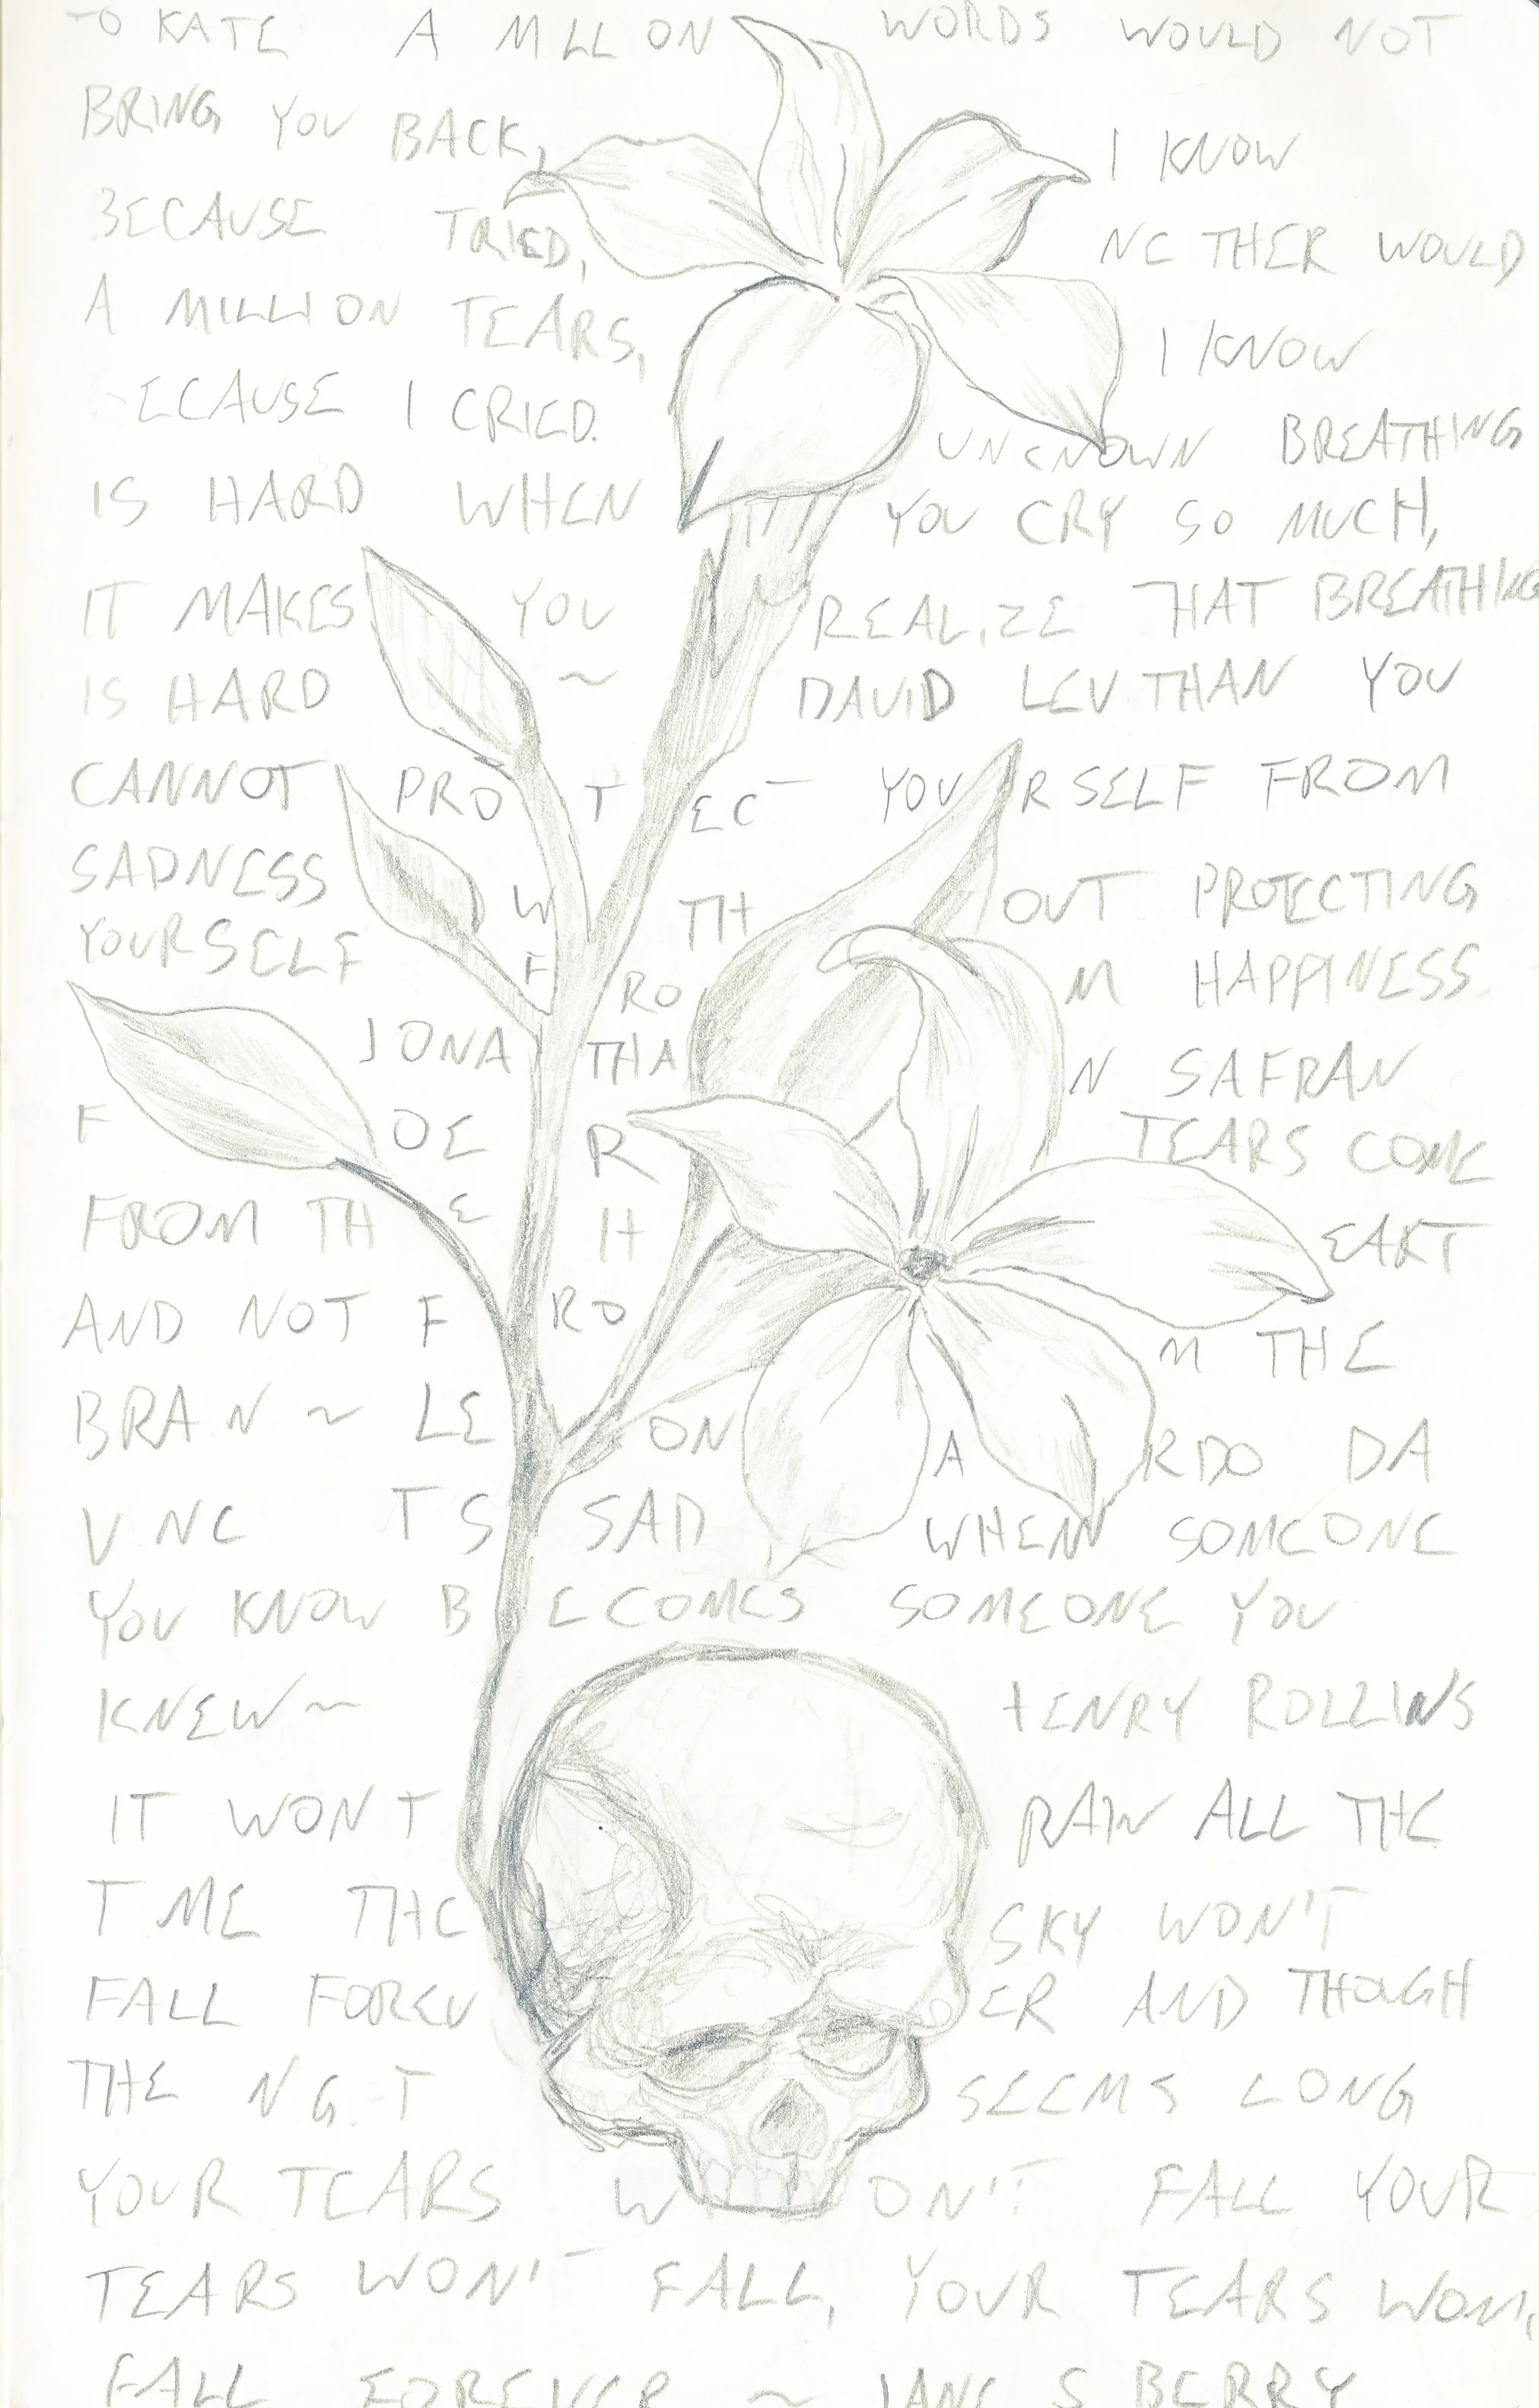 TO KATE A MLLION WORDS WOULD NOT
BRING YOU BACK, I KNOW
BECAUSE TRIED, NETHER WOULD
A MILLION TEARS, I KNOW
BECAUSE I CRIED. UNKNOWN BREATHING
IS HARD WHEN YOU CRY SO MUCH,
IT MAKES YOU REALIZE THAT BREATHING
IS HARD ~ DAVID LEVTHAN YOU
CANNOT PROTECT YOURSELF FROM
SADNESS WTHOUT PROTECTING
YOURSELF FROM HAPPINESS
JONATHAN SAFRAN
FOER TEARS COME
FROM THE HEART
AND NOT FROM THE
BRAN ~ LEONARDO DA
VNC TS SAD WHEN SOMEONE
YOU KNOW BECOMES SOMEONE YOU
KNEW ~ HENRY ROLLINS
IT WONT RAIN ALL THE
TME THE SKY WON'T
FALL FOREVER AND THOUGH
THE NGT SEEMS LONG
YOUR TEARS WON'T FALL YOUR
TEARS WON'T FALL, YOUR TEARS WON'T
FALL FOREVER ~ JANE S BERRY